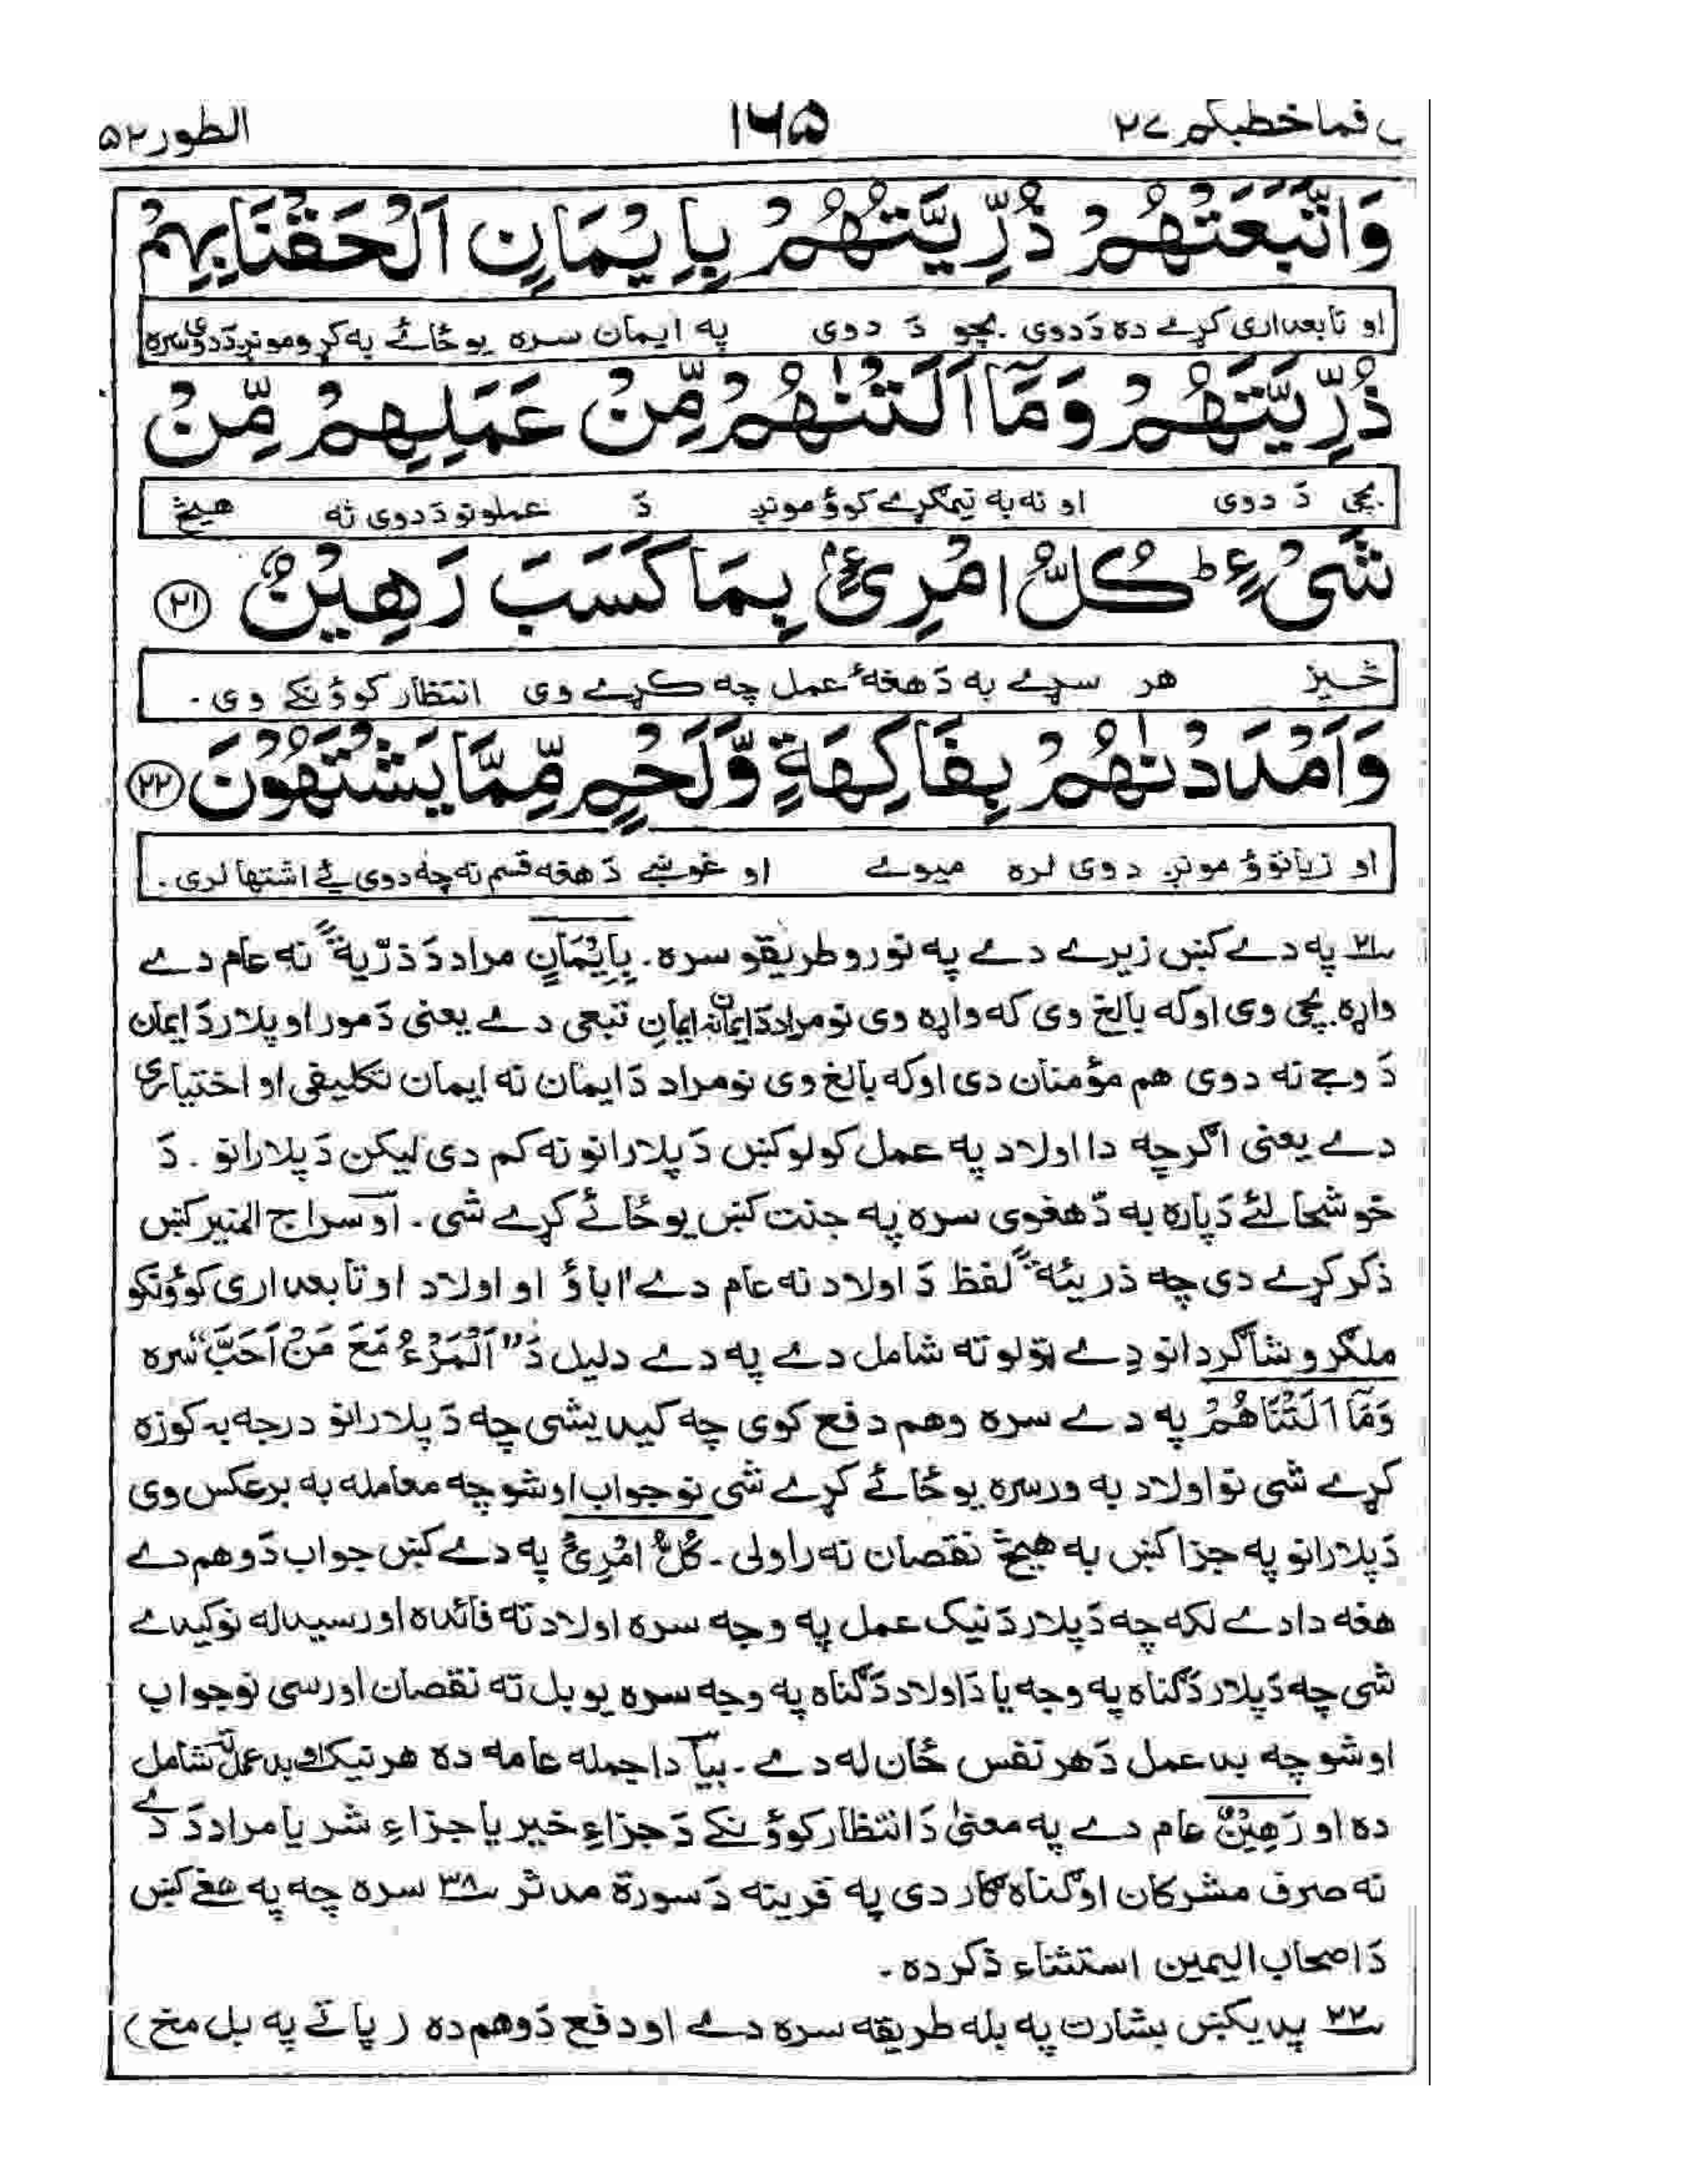 قما خطبكم ٢٧ ١٦٥ الطور ٥٢
وَاتَّبَعَتْهُمْ ذُرِّيَّتُهُمْ بِاِيْمَانٍ اَلْحَقْنَا بِهِمْ
او تابعداری کړے ده دَدوی بچو دَ دوی په ایمان سره یوځائے به کړو مونږ دَدوی سره
ذُرِّيَّتَهُمْ وَمَآ اَلَتْنٰهُمْ مِّنْ عَمَلِهِمْ مِّنْ
بچی دَ دوی او نه به تیمګړے کوؤ مونږ دَ عملونو دَدوی نه هیڅ
شَیْءٍ ؕ کُلُّ امْرِئٍۭ بِمَا کَسَبَ رَهِيْنٌ ﴿٢١﴾
څیز هر سړے به دَهغهٔ عمل چه کړے وی انتظار کوؤنکے وی.
وَاَمْدَدْنٰهُمْ بِفَاكِهَةٍ وَّلَحْمٍ مِّمَّا يَشْتَهُوْنَ ﴿٢٢﴾
او زیاتوؤ مونږ دوی لره میوے او غوښے دَهغه قسم نه چه دوی ئے اشتها لری.
؂٢١ په دے کښ زیرے دے په نورو طریقو سره. بِاِيْمَانٍ مراد دَ ذرّية نه عام دے
واړه بچی وی او که بالغ وی که واړه وی نو مراد دَ ایمان نه ایمان تبعی دے یعنی دَمور او پلار دَایمان
دَ وجے نه دوی هم مؤمنان دی او که بالغ وی نو مراد دَ ایمان نه ایمان تکلیفی او اختیاری
دے یعنی اګرچه دا اولاد په عمل کولو کښ دَپلارانو نه کم دی لیکن دَ پلارانو. دَ
خوشحالئے دَپاره به دَهغوی سره په جنت کښ یوځائے کړے شی. او سراج المنیر کښ
ذکر کړے دی چه ذریئة لفظ دَ اولاد نه عام دے اباؤ او اولاد او تابعداری کوؤنکو
ملګرو شاګردانو دے ټولو ته شامل دے په دے دلیل دَ "اَلْمَرْءُ مَعَ مَنْ اَحَبَّ" سره
وَمَآ اَلَتْنَاهُمْ په دے سره وهم دفع کوی چه کیدیشی چه دَ پلارانو درجه به کوزه
کړے شی نو اولاد به ورسره یوځائے کړے شی نو جواب اوشو چه معامله به برعکس وی
دَپلارانو په جزا کښ به هیڅ نقصان نه راولی. کُلُّ امْرِئٍ په دے کښ جواب دَوهم دے
هغه دا دے لکه چه دَپلار دَنیک عمل په وجه سره اولاد ته فائده اورسیدله نو کیدے
شی چه دَپلار دَګناه په وجه یا دَاولاد دَګناه په وجه سره یو بل ته نقصان اورسی نو جواب
اوشو چه بد عمل دَهر نفس ځان له دے. بیا دا جمله عامه ده هر نیک او بد عمل ته شامل
ده او رَهِيْنٌ عام دے په معنیٰ دَ انتظار کوؤنکے دَ جزاءِ خیر یا جزاءِ شر یا مراد دَ دے
نه صرف مشرکان او ګناه ګار دی په قرینه دَ سورة مدثر ؂٣٨ سره چه په هغے کښ
دَاصحاب الیمین استثناء ذکر ده.
؂٢٢ پدیکښ بشارت په بله طریقه سره دے او دفع دَوهم ده (پاتے په بل مخ)